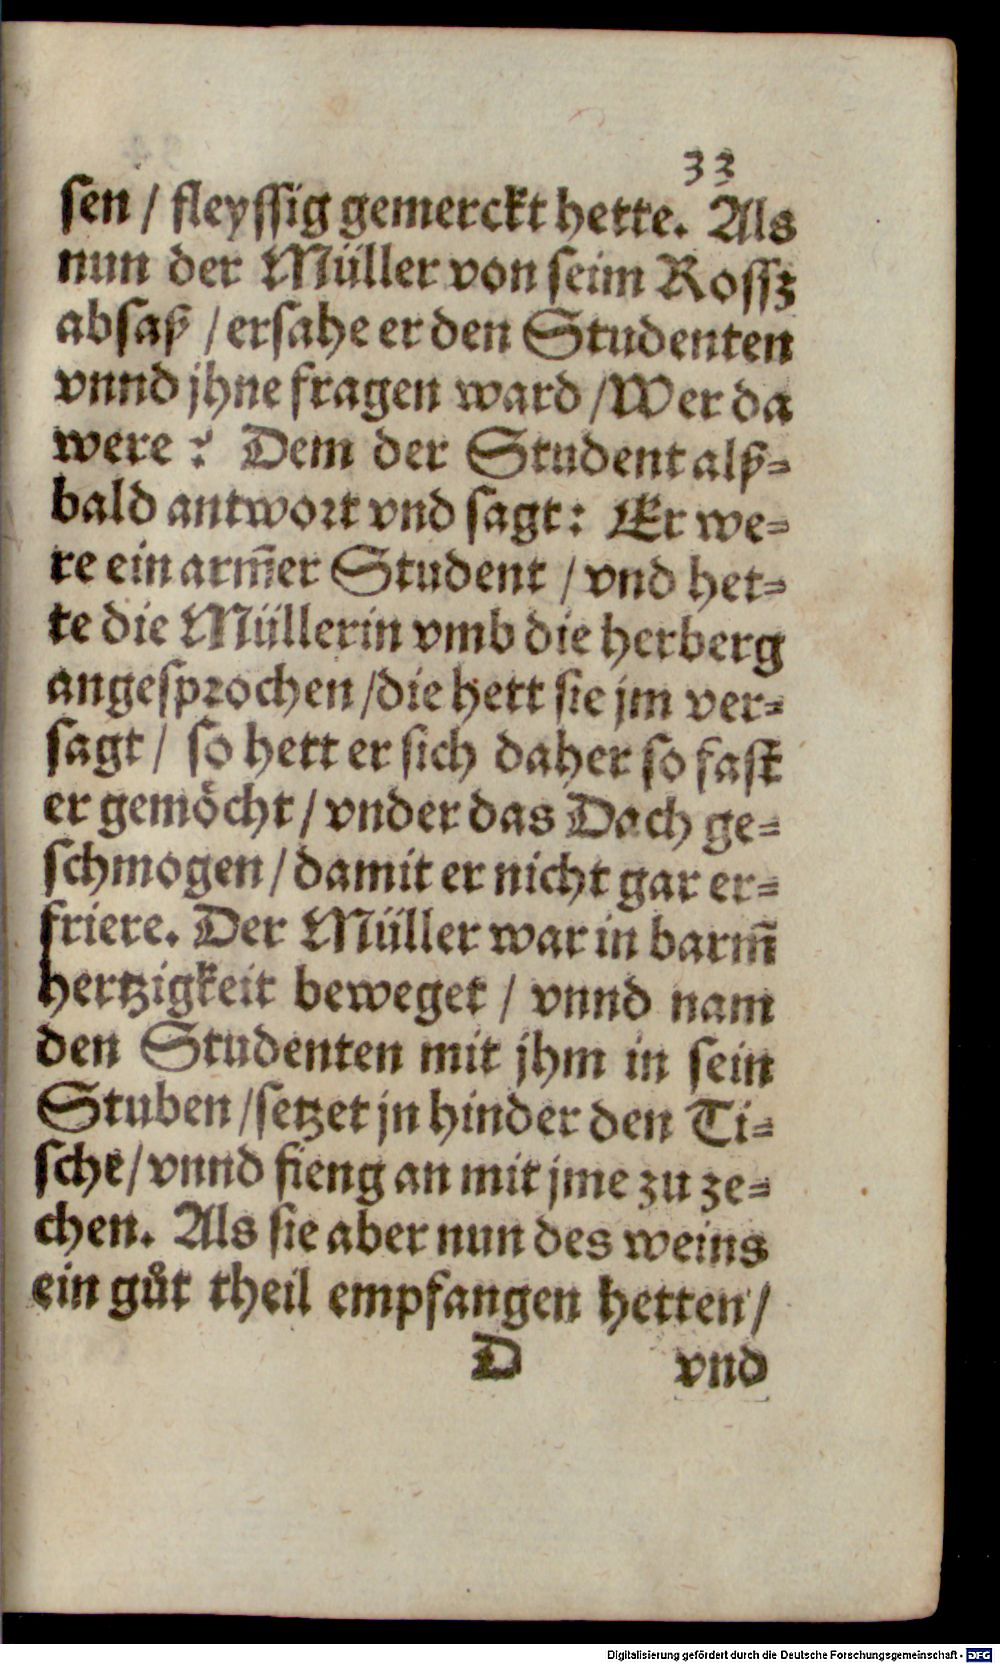 33
sen / fleyssig gemerckt hette. Als
nun der Müller von seim Rossz
absaß / ersahe er den Studenten
vnnd jhne fragen ward / Wer da
were ? Dem der Student alß=
bald antwort vnd sagt: Er we=
re ein arm̄er Student / vnd het=
te die Müllerin vmb die herberg
angesprochen / die hett sie jm ver=
sagt / so hett er sich daher so fast
er gemöcht / vnder das Dach ge=
schmogen / damit er nicht gar er=
friere. Der Müller war in barm̄
hertzigkeit beweget / vnnd nam
den Studenten mit jhm in sein
Stuben / setzet jn hinder den Ti=
sche / vnnd fieng an mit jme zu ze=
chen. Als sie aber nun des weins
ein gůt theil empfangen hetten /
D vnd
Digitalisierung gefördert durch die Deutsche Forschungsgemeinschaft - DFG